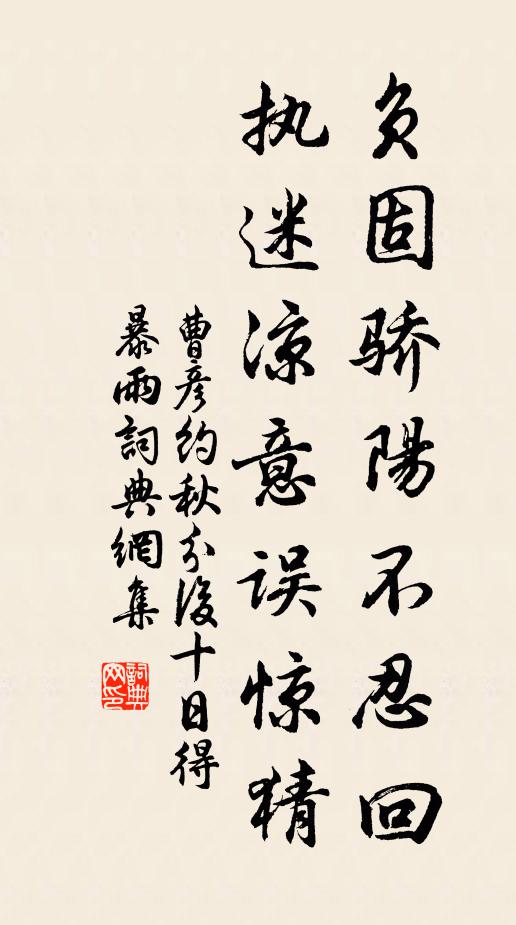 负固骄陽不忍回
执迷凉意误惊猜
曹彦约秋分後十日得
暴雨詞典網集
詞典
网印